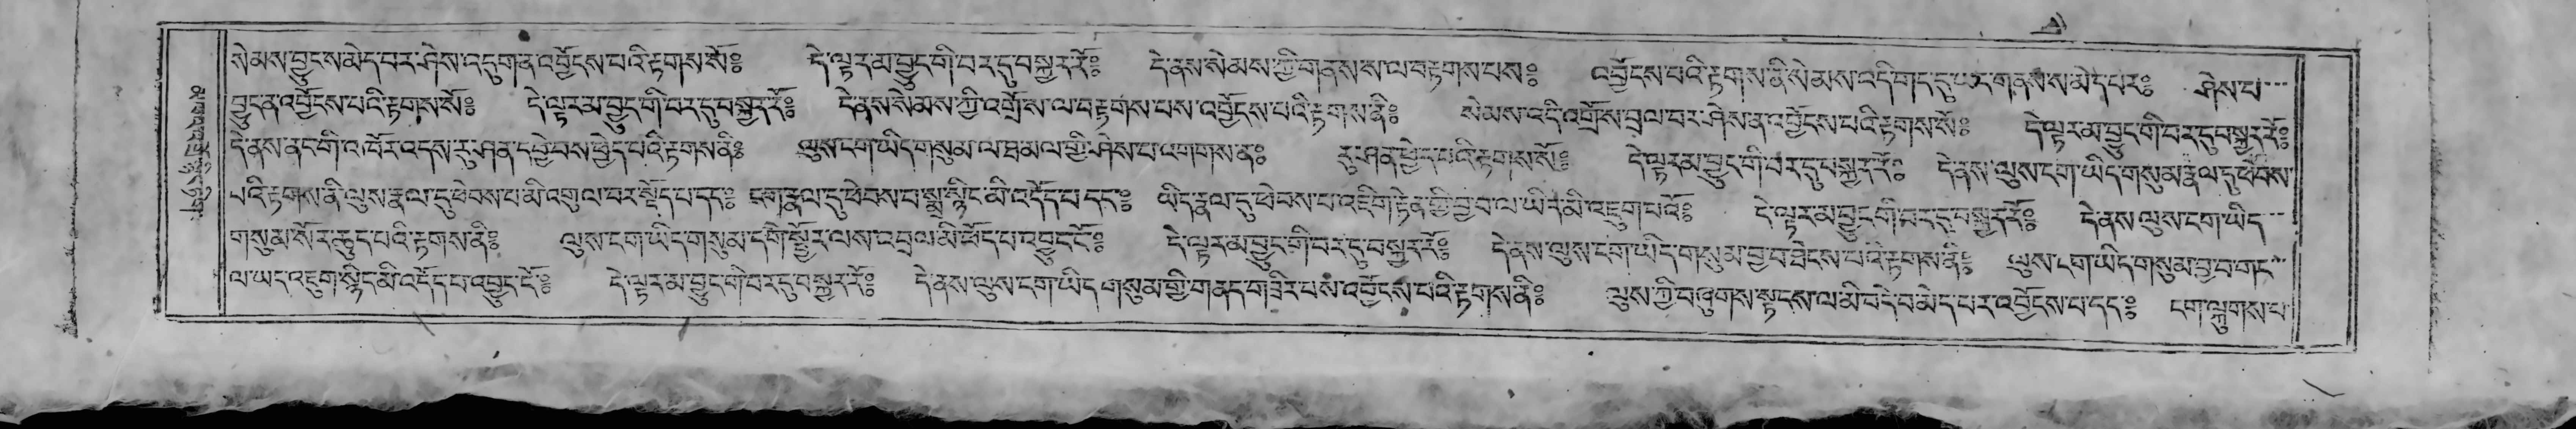 སེམས་བྱུང་ས་མེད་པར་ཤེས་འདུག་ན་འབྱོངས་པའི་རྟགས་སོ༔ དེ་ལྟར་མ་བྱུང་གི་བར་དུ་བསྐྱར་རོ༔ དེ་ནས་སེམས་ཀྱི་གནས་ས་ལ་བརྟགས་པས༔ འབྱོངས་པའི་རྟགས་ནི་སེམས་འདི་གང་དུ་ཡང་གནས་ས་མེད་པར༔ ཤེས་པ་
བྱུང་ན་འབྱོངས་པའི་རྟགས་སོ༔ དེ་ལྟར་མ་བྱུང་གི་བར་དུ་བསྐྱར་རོ༔ དེ་ནས་སེམས་ཀྱི་འགྲོས་ལ་བརྟགས་པས་འབྱོངས་པའི་རྟགས་ནི༔ སེམས་འདི་འགྲོས་བྲལ་བར་ཤེས་ན་འབྱོངས་པའི་རྟགས་སོ༔ དེ་ལྟར་མ་བྱུང་གི་བར་དུ་བསྐྱར་རོ༔
དེ་ནས་ནང་གི་འཁོར་འདས་རུ་ཤན་དབྱེ་བས་ཕྱེད་པའི་རྟགས་ནི༔ ལུས་ངག་ཡིད་གསུམ་ལ་ཐམལ་གྱི་ཤེས་པ་འགགས་ན༔ རུ་ཤན་ཕྱེད་པའི་རྟགས་སོ༔ དེ་ལྟར་མ་བྱུང་གི་བར་དུ་བསྐྱར་རོ༔ དེ་ནས་ལུས་ངག་ཡིད་གསུམ་རྣལ་དུ་ཕེབས་
པའི་རྟགས་ནི་ལུས་རྣལ་དུ་ཕེབས་པ་མི་འགུལ་བར་སྡོད་པ་དང༔ ངག་རྣལ་དུ་ཕེབས་པ་སྨྲ་སྙིང་མི་འདོད་པ་དང༔ ཡིད་རྣལ་དུ་ཕེབས་པ་འཇིག་རྟེན་གྱི་བྱ་བ་ལ་ཡིད་མི་འཇུག་པའོ༔ དེ་ལྟར་མ་བྱུང་གི་བར་དུ་བསྐྱར་རོ༔ དེ་ནས་ལུས་ངག་ཡིད་
གསུམ་སོར་ཆུད་པའི་རྟགས་ནི༔ ལུས་ངག་ཡིད་གསུམ་དགེ་སྦྱོར་ལས་འབྲལ་མི་ཕོད་པ་འབྱུང་ངོ༔ དེ་ལྟར་མ་བྱུང་གི་བར་དུ་བསྐྱར་རོ༔ དེ་ནས་ལུས་ངག་ཡིད་གསུམ་བྱ་བ་ཐེངས་པའི་རྟགས་ནི༔ ལུས་ངག་ཡིད་གསུམ་བྱ་བ་གང་
ལ་ཡང་འཇུག་སྙིང་མི་འདོད་པ་འབྱུང་ངོ༔ དེ་ལྟར་མ་བྱུང་གི་བར་དུ་བསྐྱར་རོ༔ དེ་ནས་ལུས་ངག་ཡིད་གསུམ་གྱི་གནད་གཟིར་བས་འབྱོངས་པའི་རྟགས་ནི༔ ལུས་ཀྱི་བཞུགས་སྟངས་ལ་མི་བདེ་བ་མེད་པར་འབྱོངས་པ་དང༔ ངག་ལྐུགས་པ་